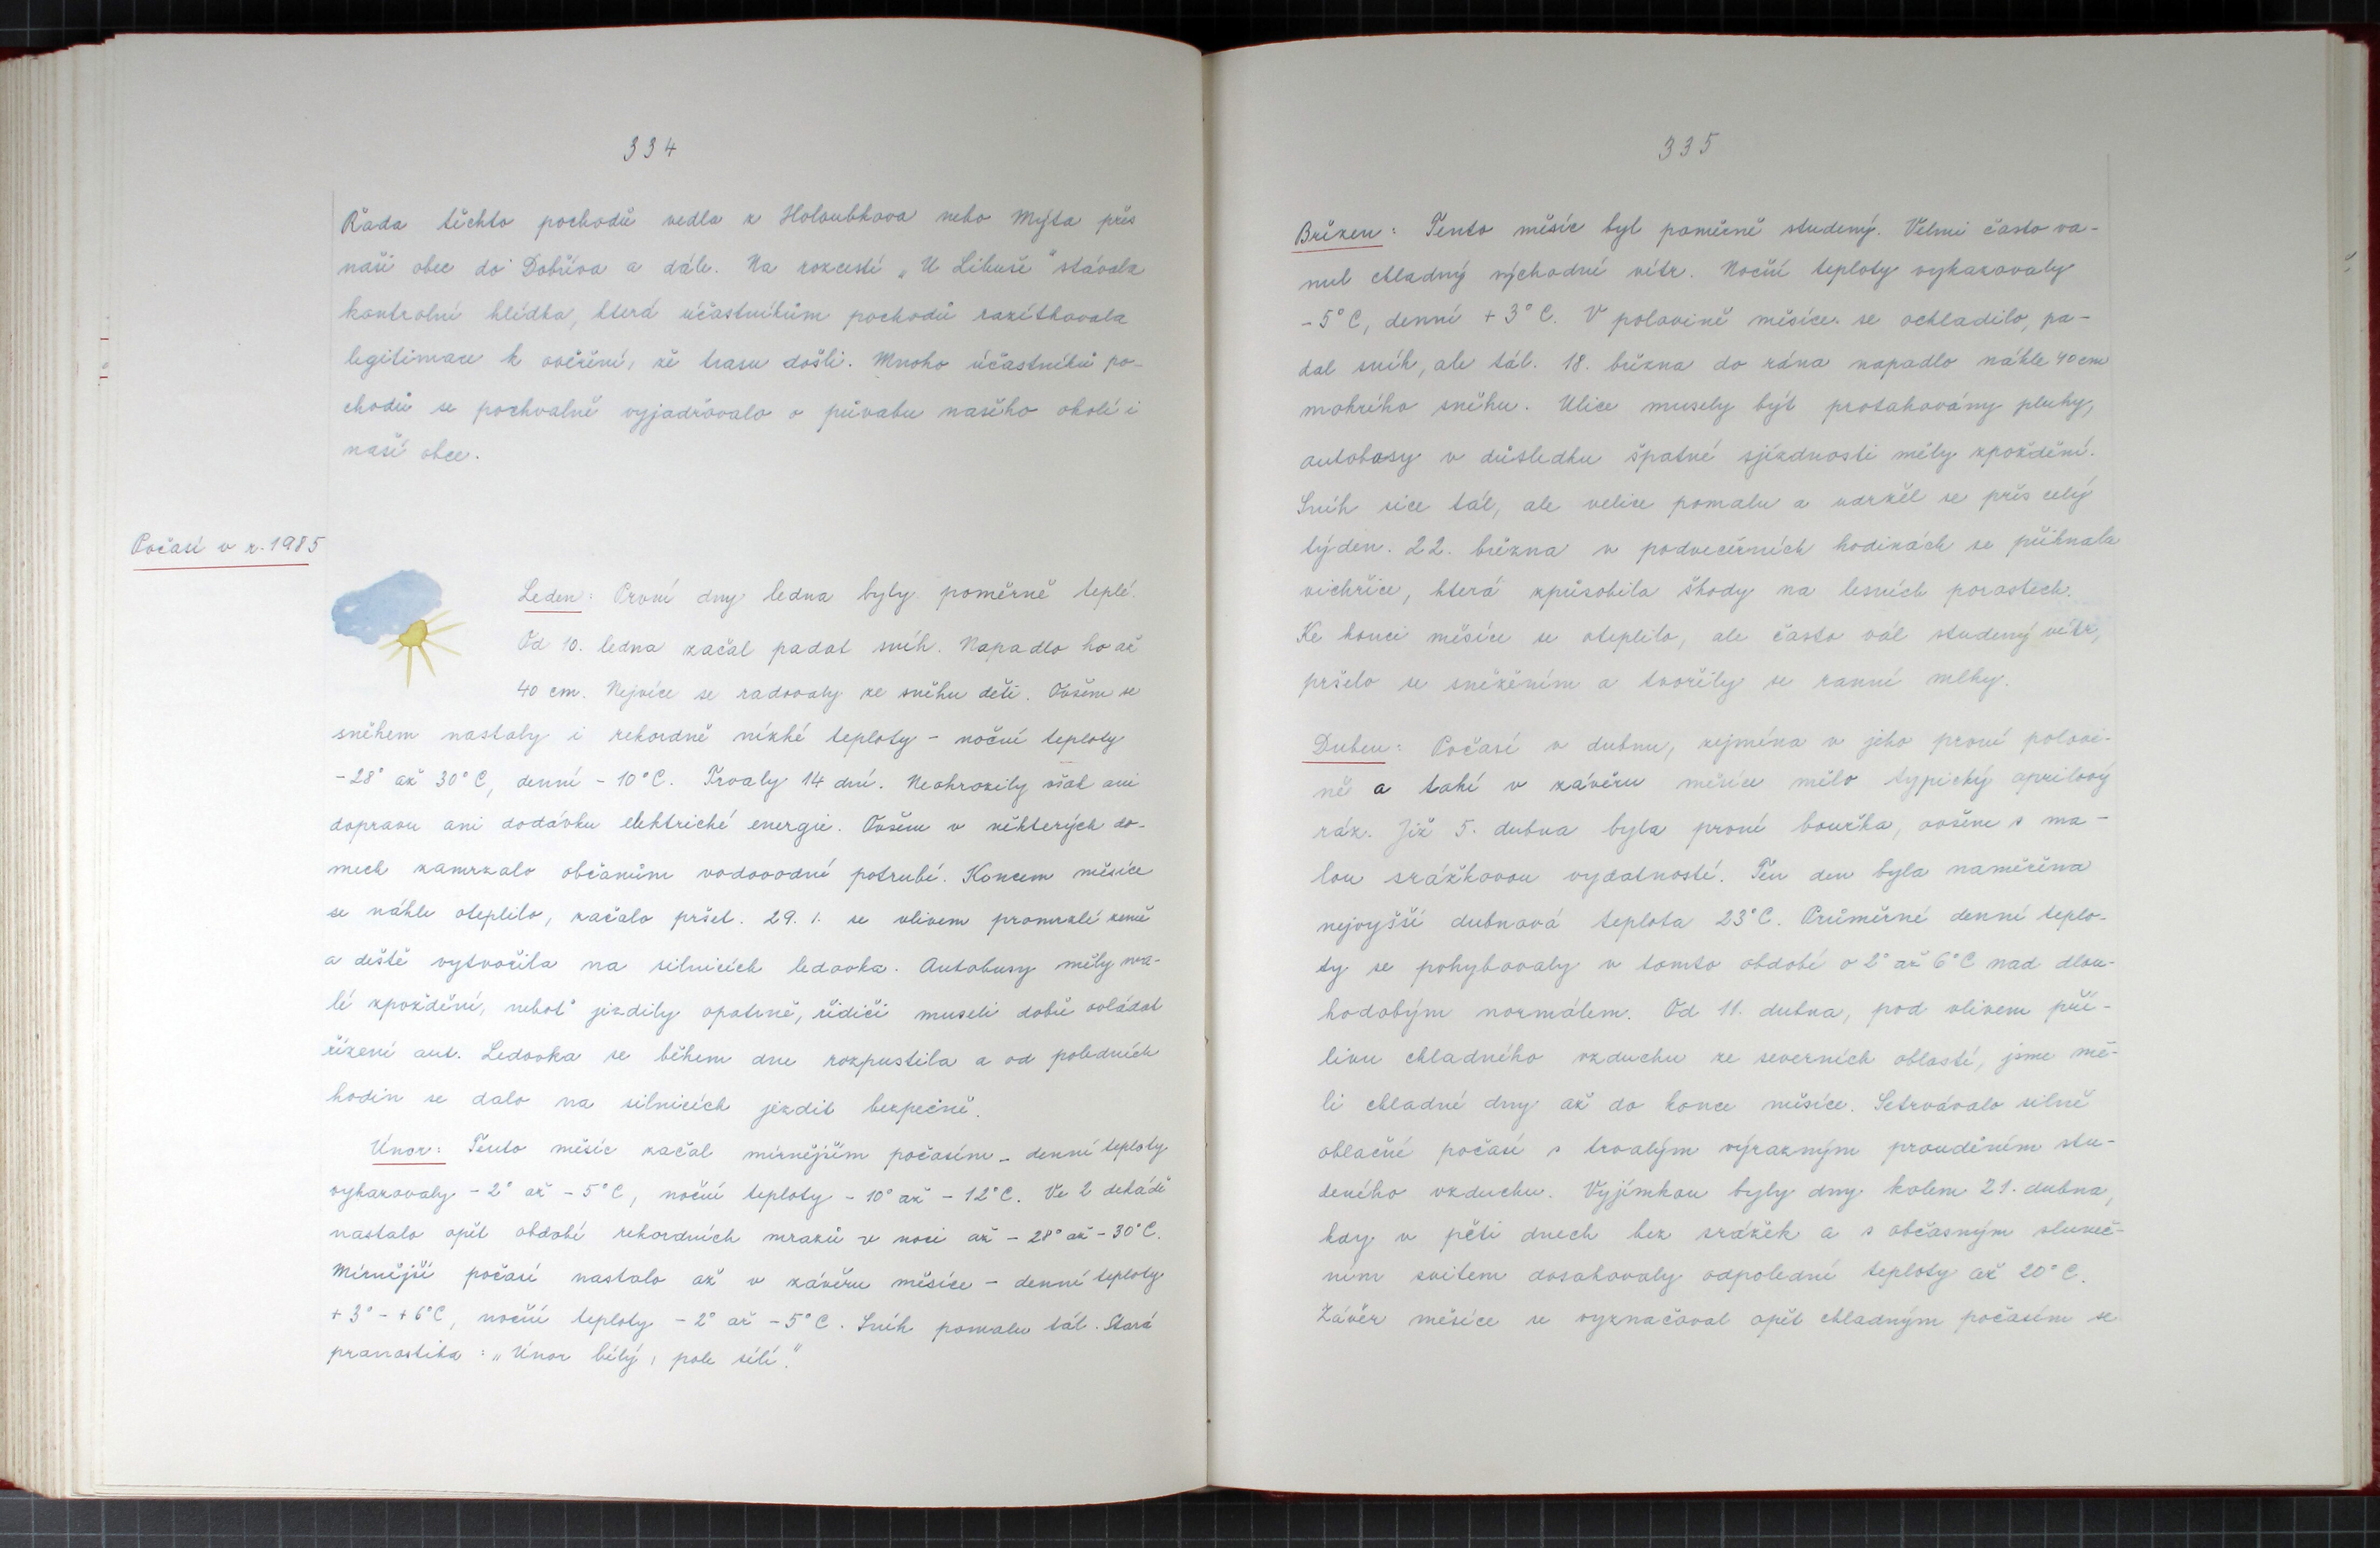 334
Řada těchto pochodů vedla z Holoubkova nebo Mýta přes
naši obec do Dobříva a dále. Na rozcestí „U Libuše" stávala
kontrolní hlídka, která účastníkům pochodů razítkovala
legitimace k ověření, že trasu došli. Mnoho účastníků po-
chodů se pochvalně vyjadřovalo o půvabu našeho okolí i
naší obce.
Počasí v r. 1985
Leden: První dny ledna byly poměrně teplé.
Od 10. ledna začal padat sníh. Napadlo ho až
40 cm. Nejvíce se radovaly ze sněhu děti. Ovšem se
sněhem nastaly i rekordně nízké teploty - noční teploty
-28° až 30°C, denní -10°C. Trvaly 14 dní. Neohrozily však ani
dopravu ani dodávku elektrické energie. Ovšem v některých do-
mech zamrzalo občanům vodovodní potrubí. Koncem měsíce
se náhle oteplilo, začalo pršet. 29. 1. se vlivem promrzlé země
a deště vytvořila na silnicích ledovka. Autobusy měly ma-
lé zpoždění, neboť jezdily opatrně, řidiči museli dobře ovládat
řízení aut. Ledovka se během dne rozpustila a od poledních
hodin se dalo na silnicích jezdit bezpečně.
Únor: Tento měsíc začal mírnějším počasím - denní teploty
vykazovaly -2° až -5°C, noční teploty -10° až -12°C. Ve 2 dekádě
nastalo opět období rekordních mrazů v noci až -28° až -30°C.
Mírnější počasí nastalo až v závěru měsíce - denní teploty
+3° - +6°C, noční teploty -2° až -5°C. Sníh pomalu tál. Stará
pranostika: „Únor bílý, pole sílí."
335
Březen: Tento měsíc byl poměrně studený. Velmi často va-
nul chladný východní vítr. Noční teploty vykazovaly
-5°C, denní +3°C. V polovině měsíce se ochladilo, pa-
dal sníh, ale tál. 18. března do rána napadlo náhle 40 cm
mokrého sněhu. Ulice musely být protahovány pluhy,
autobusy v důsledku špatné sjízdnosti měly zpoždění.
Sníh sice tál, ale velice pomalu a udržel se přes celý
týden. 22. března v podvečerních hodinách se přihnala
vichřice, která způsobila škody na lesních porostech.
Ke konci měsíce se oteplilo, ale často vál studený vítr,
pršelo se sněžením a tvořily se ranní mlhy.
Duben: Počasí v dubnu, zejména v jeho první polovi-
ně a také v závěru měsíce mělo typický aprílový
ráz. Již 5. dubna byla první bouřka, ovšem s ma-
lou srážkovou vydatností. Ten den byla naměřena
nejvyšší dubnová teplota 23°C. Průměrné denní teplo-
ty se pohybovaly v tomto období o 2° až 6°C nad dlou-
hodobým normálem. Od 11. dubna, pod vlivem pří-
livu chladného vzduchu ze severních oblastí, jsme mě-
li chladné dny až do konce měsíce. Setrvávalo silně
oblačné počasí s trvalým výrazným prouděním stu-
deného vzduchu. Vyjímkou byly dny kolem 21. dubna,
kdy v pěti dnech bez srážek a s občasným sluneč-
ním svitem dosahovaly odpolední teploty až 20°C.
Závěr měsíce se vyznačoval opět chladným počasím se